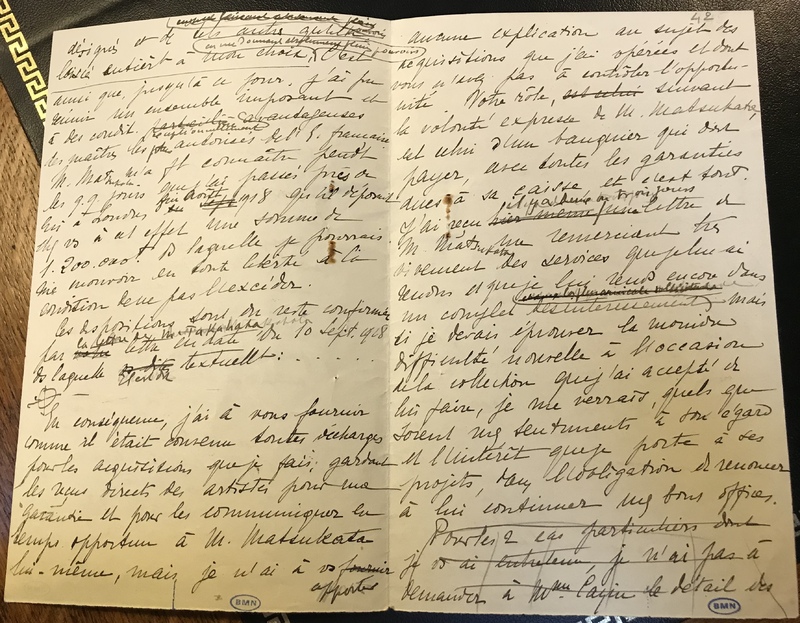 désignés et de tels autre qu'il
laissa entièrt à mon choix, c'est
en me donnant absolument pleins pouvoirs
ainsi que, jusqu'à ce jour, j'ai pu
réunir un ensemble imposant et
à des condit. avantageuses
les maîtres les autorisés de l'E. française
M. Mats. m'a ft connaître pendt
les q.q. jours que j'ai passés près de
lui à Londres fin août 1918 qu'il déposait
chez vs à cet effet une somme de
1.200.000 f. de laquelle je pourrais
me mouvoir en toute liberté à la
condition de ne pas l'excéder.
Ces dispositions sont du reste confirmées
par la lettre en date du 10 Sept. 1918
de laquelle textuellt : . . . . . .
En conséquence, j'ai à vous fournir
comme il était convenu toutes décharges
pour les acquisitions que je fais, gardant
les reçus directs des artistes pour ma
garantie et pour les communiquer en
temps opportun à M. Matsukata
lui-même, mais je n'ai à vs fournir
apporter
42
aucune explication au sujet des
acquisitions que j'ai opérées et dont
vous n'avez pas à contrôler l'opportu-
nité. Votre rôle, est celui suivant
la volonté expresse de M. Matsukata,
est celui d'un banquier qui doit
payer, avec toutes les garanties
dues à sa caisse et c'est tout.
il y a deux ou trois jours
J'ai reçu hier même une lettre de
M. Matsukata me remerciant très
vivement des services que je lui ai
rendus et que je lui rends encore dans
un complet désintéressement mais
si je devais éprouver la moindre
difficulté nouvelle à l'occasion
de la collection que j'ai accepté de
lui faire, je me verrais, quels que
soient mes sentiments à son égard
et l'intérêt que je porte à ses
projets, dans l'obligation de renoncer
à lui continuer mes bons offices.
Pour les 2 cas particuliers dont
je vs ai entretenu, je n'ai pas à
demander à Mme le détail des
BMN
BMN